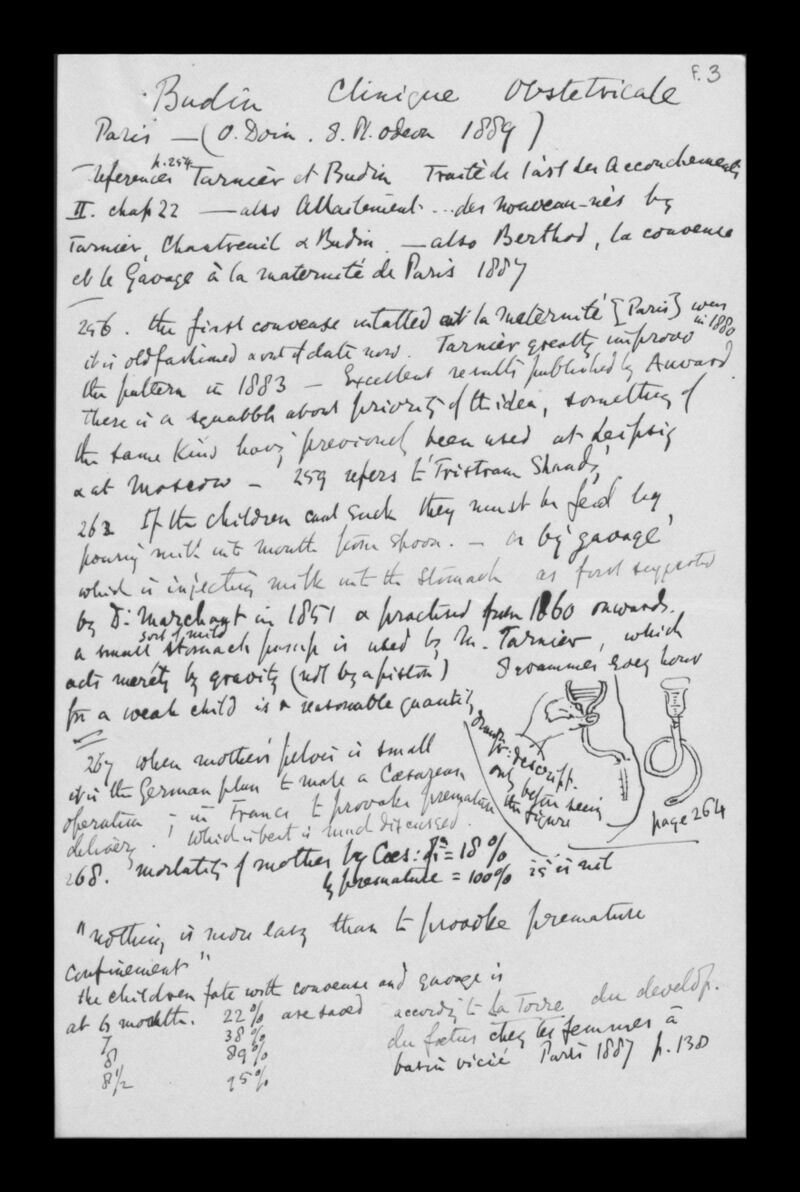 F. 3
Budin Clinique Obstetricale
Paris — (O. Doin. 8. Pl. odeon 1889)
references p. 254 Tarnier et Budin Traité de l'art des Accouchements
II. chap 22 — also Allaitement ... des nouveau-nés by
Tarnier, Chantreuil & Budin — also Berthod, la couveuse
et le Gavage à la maternité de Paris 1887
256. the first couveuse at la maternité [Paris] was in 1880
it is old fashioned & out of date now. Tarnier greatly improved
the pattern in 1883 — Excellent results published by Auvard
there is a squabble about priority of the idea, something of
the same kind having previously been used at Leipsig
& at Moscow — 259 refers to 'Tristram Shandy'
262 If the children cant suck they must be fed by
pouring milk into mouth from spoon. — or by 'gavage'
which is injecting milk into the stomach as first suggested
by Dr. Marchant in 1851 & practised from 1860 onwards.
a small sort of mild stomach pump is used by M. Tarnier, which
acts merely by gravity (not by a piston) 8 grammes every hour
for a weak child is a reasonable quantity
drawn fr: descript.
only before seeing
the figure
page 264
267 when mother's pelvis is small
it is the German plan to make a Caesarean
operation; in France to provoke premature
delivery. Which is best is much discussed.
268. mortality of mother by Caes: = 18%
by premature = 100% is not
"nothing is more easy than to provoke premature
confinement"
the children fate with couveuse and gavage is
at 6 month. 22% are saved according to La Torre du develop.
7 38% du foetus chez les femmes à
8 89% bassin vicié Paris 1887 p. 130
8½ 95%